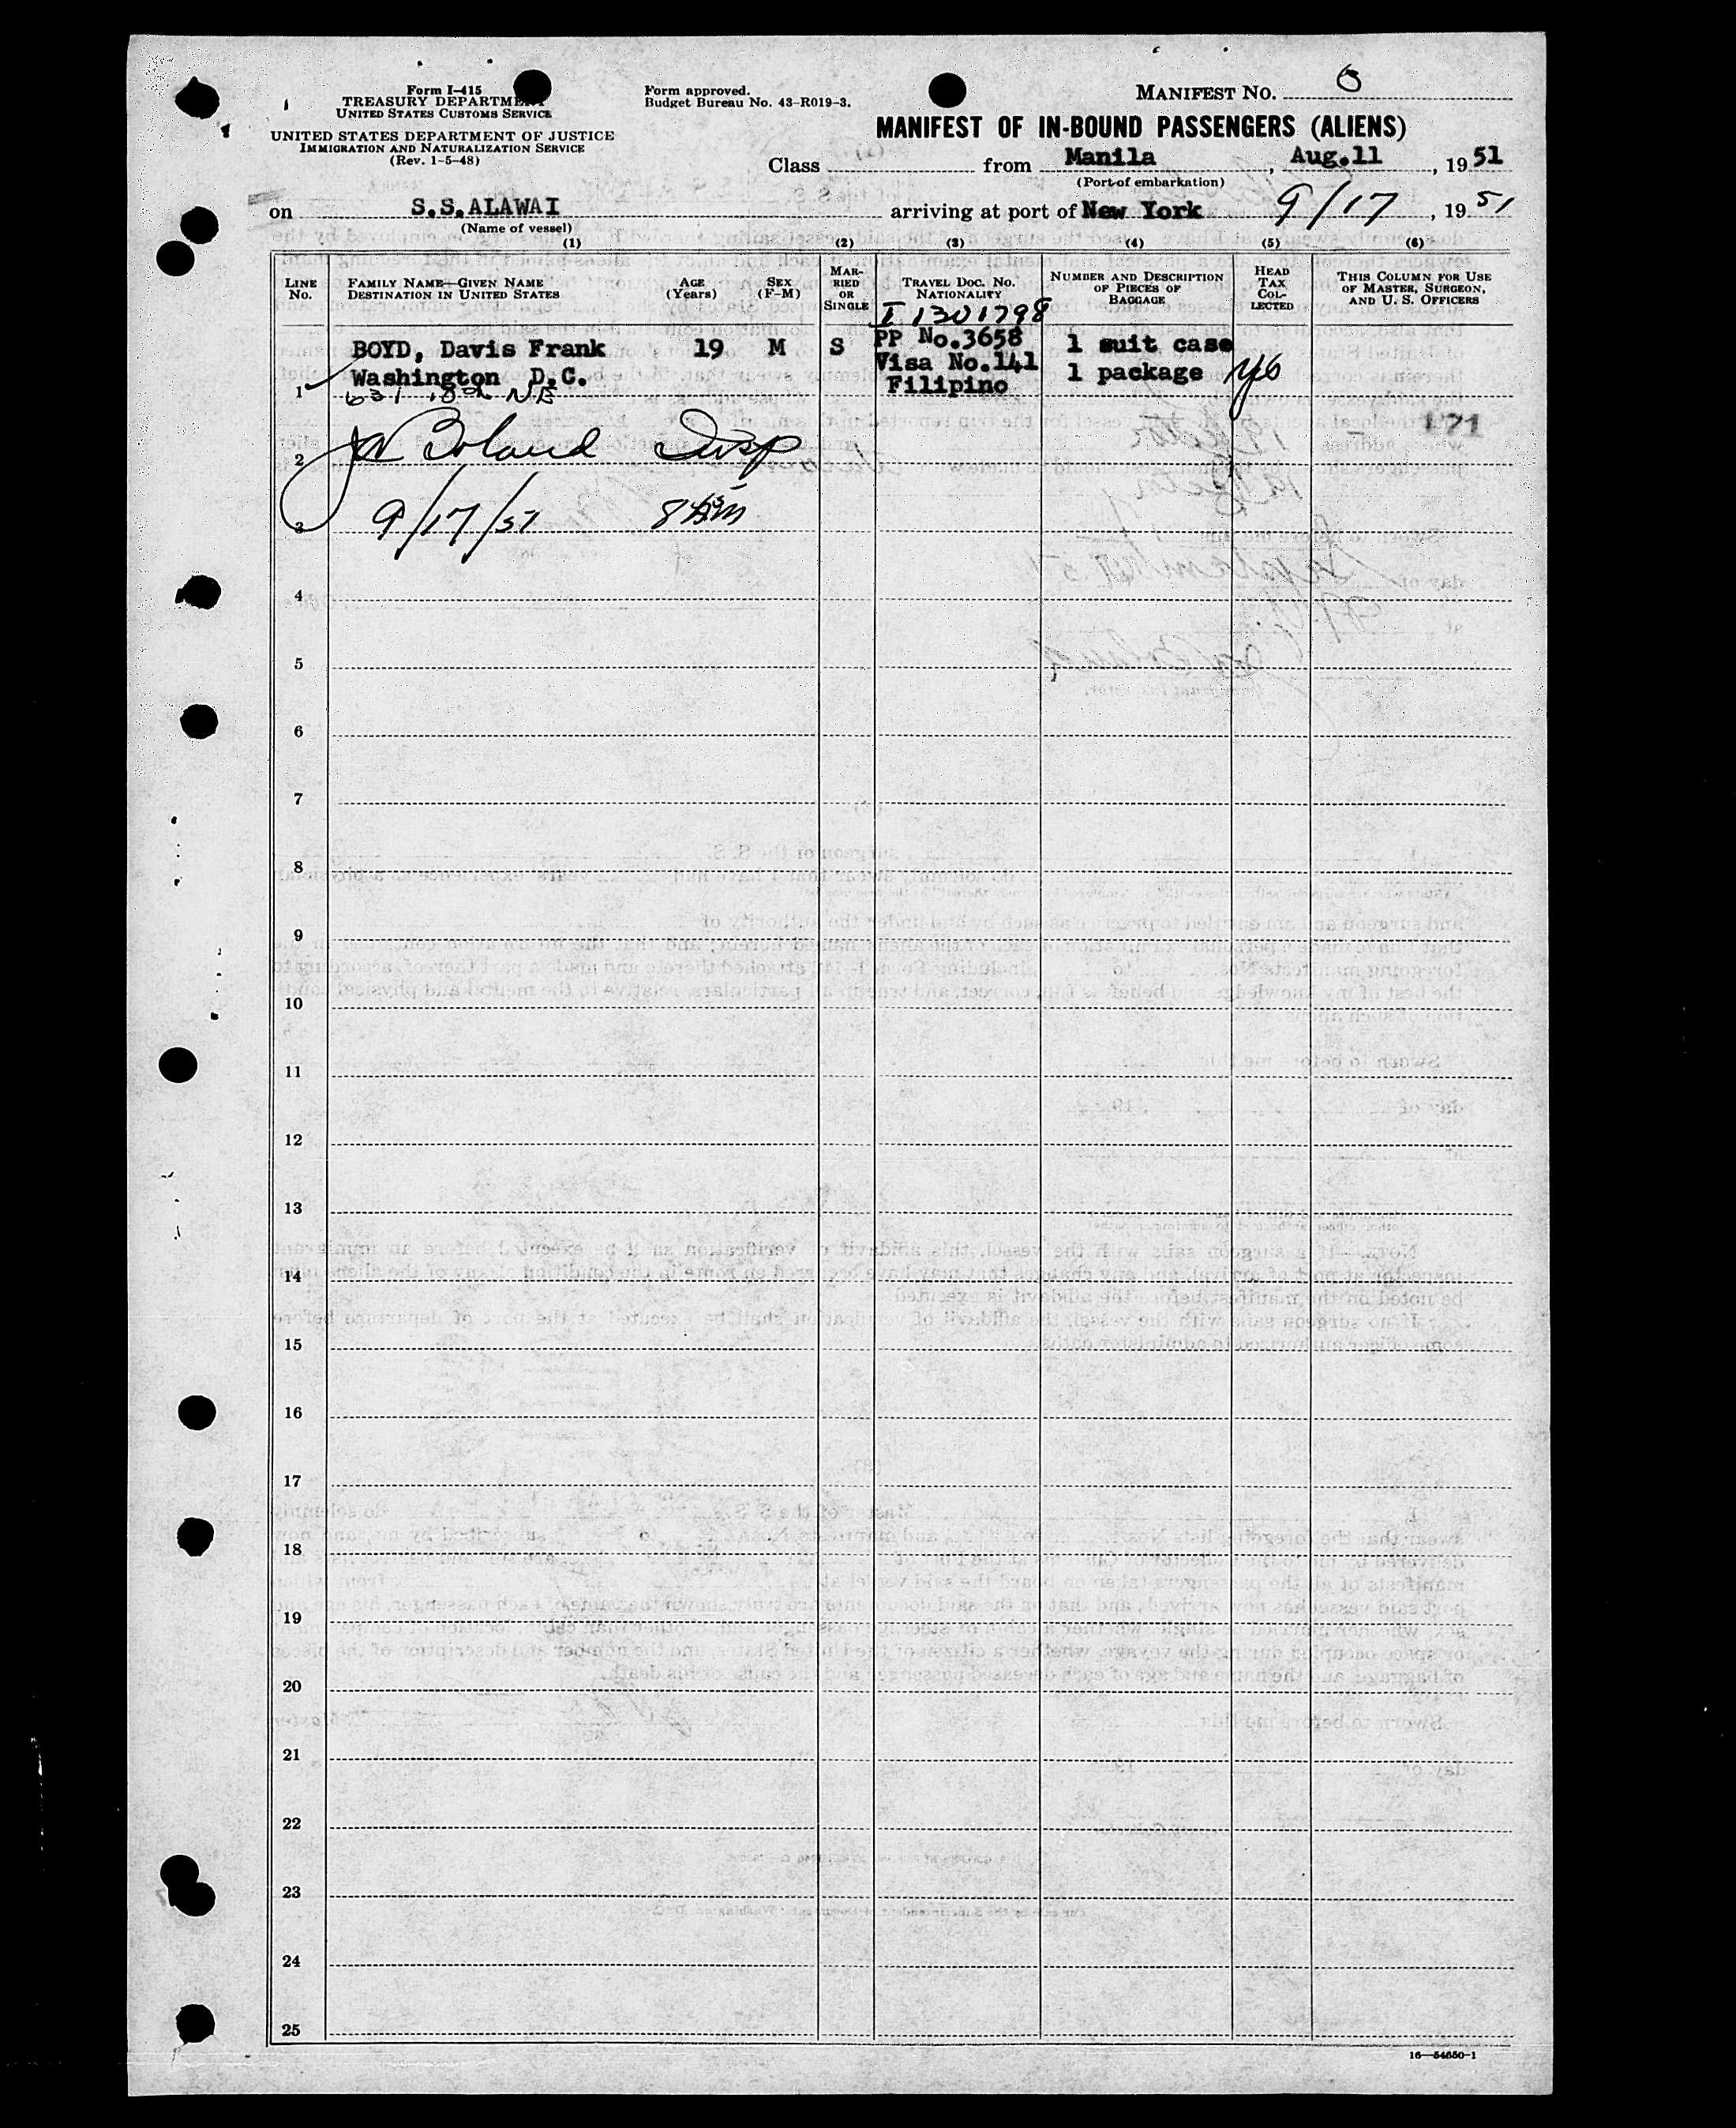 Form I-415
TREASURY DEPARTMENT
UNITED STATES CUSTOMS SERVICE
UNITED STATES DEPARTMENT OF JUSTICE
IMMIGRATION AND NATURALIZATION SERVICE
(Rev. 1-5-48)
Form approved.
Budget Bureau No. 43-R019-3.
MANIFEST NO.
MANIFEST OF IN-BOUND PASSENGERS (ALIENS)
Class from Manila, Aug.11, 1951
(Port of embarkation)
on S.S.ALAWAI arriving at port of New York 9/17, 1951
(Name of vessel)
(1) (2) (3) (4) (5) (6)
LINE No.
FAMILY NAME—GIVEN NAME
DESTINATION IN UNITED STATES
AGE (Years)
SEX (F-M)
MARRIED OR SINGLE
TRAVEL DOC. NO.
NATIONALITY
NUMBER AND DESCRIPTION OF PIECES OF BAGGAGE
HEAD TAX COLLECTED
THIS COLUMN FOR USE OF MASTER, SURGEON, AND U. S. OFFICERS
I 1301798
BOYD, Davis Frank 19 M S PP No.3658 1 suit case
1 Washington D.C. Visa No.141 1 package
Filipino
171
2 Boland Insp
3 9/17/51
4
5
6
7
8
9
10
11
12
13
14
15
16
17
18
19
20
21
22
23
24
25
16—54650-1